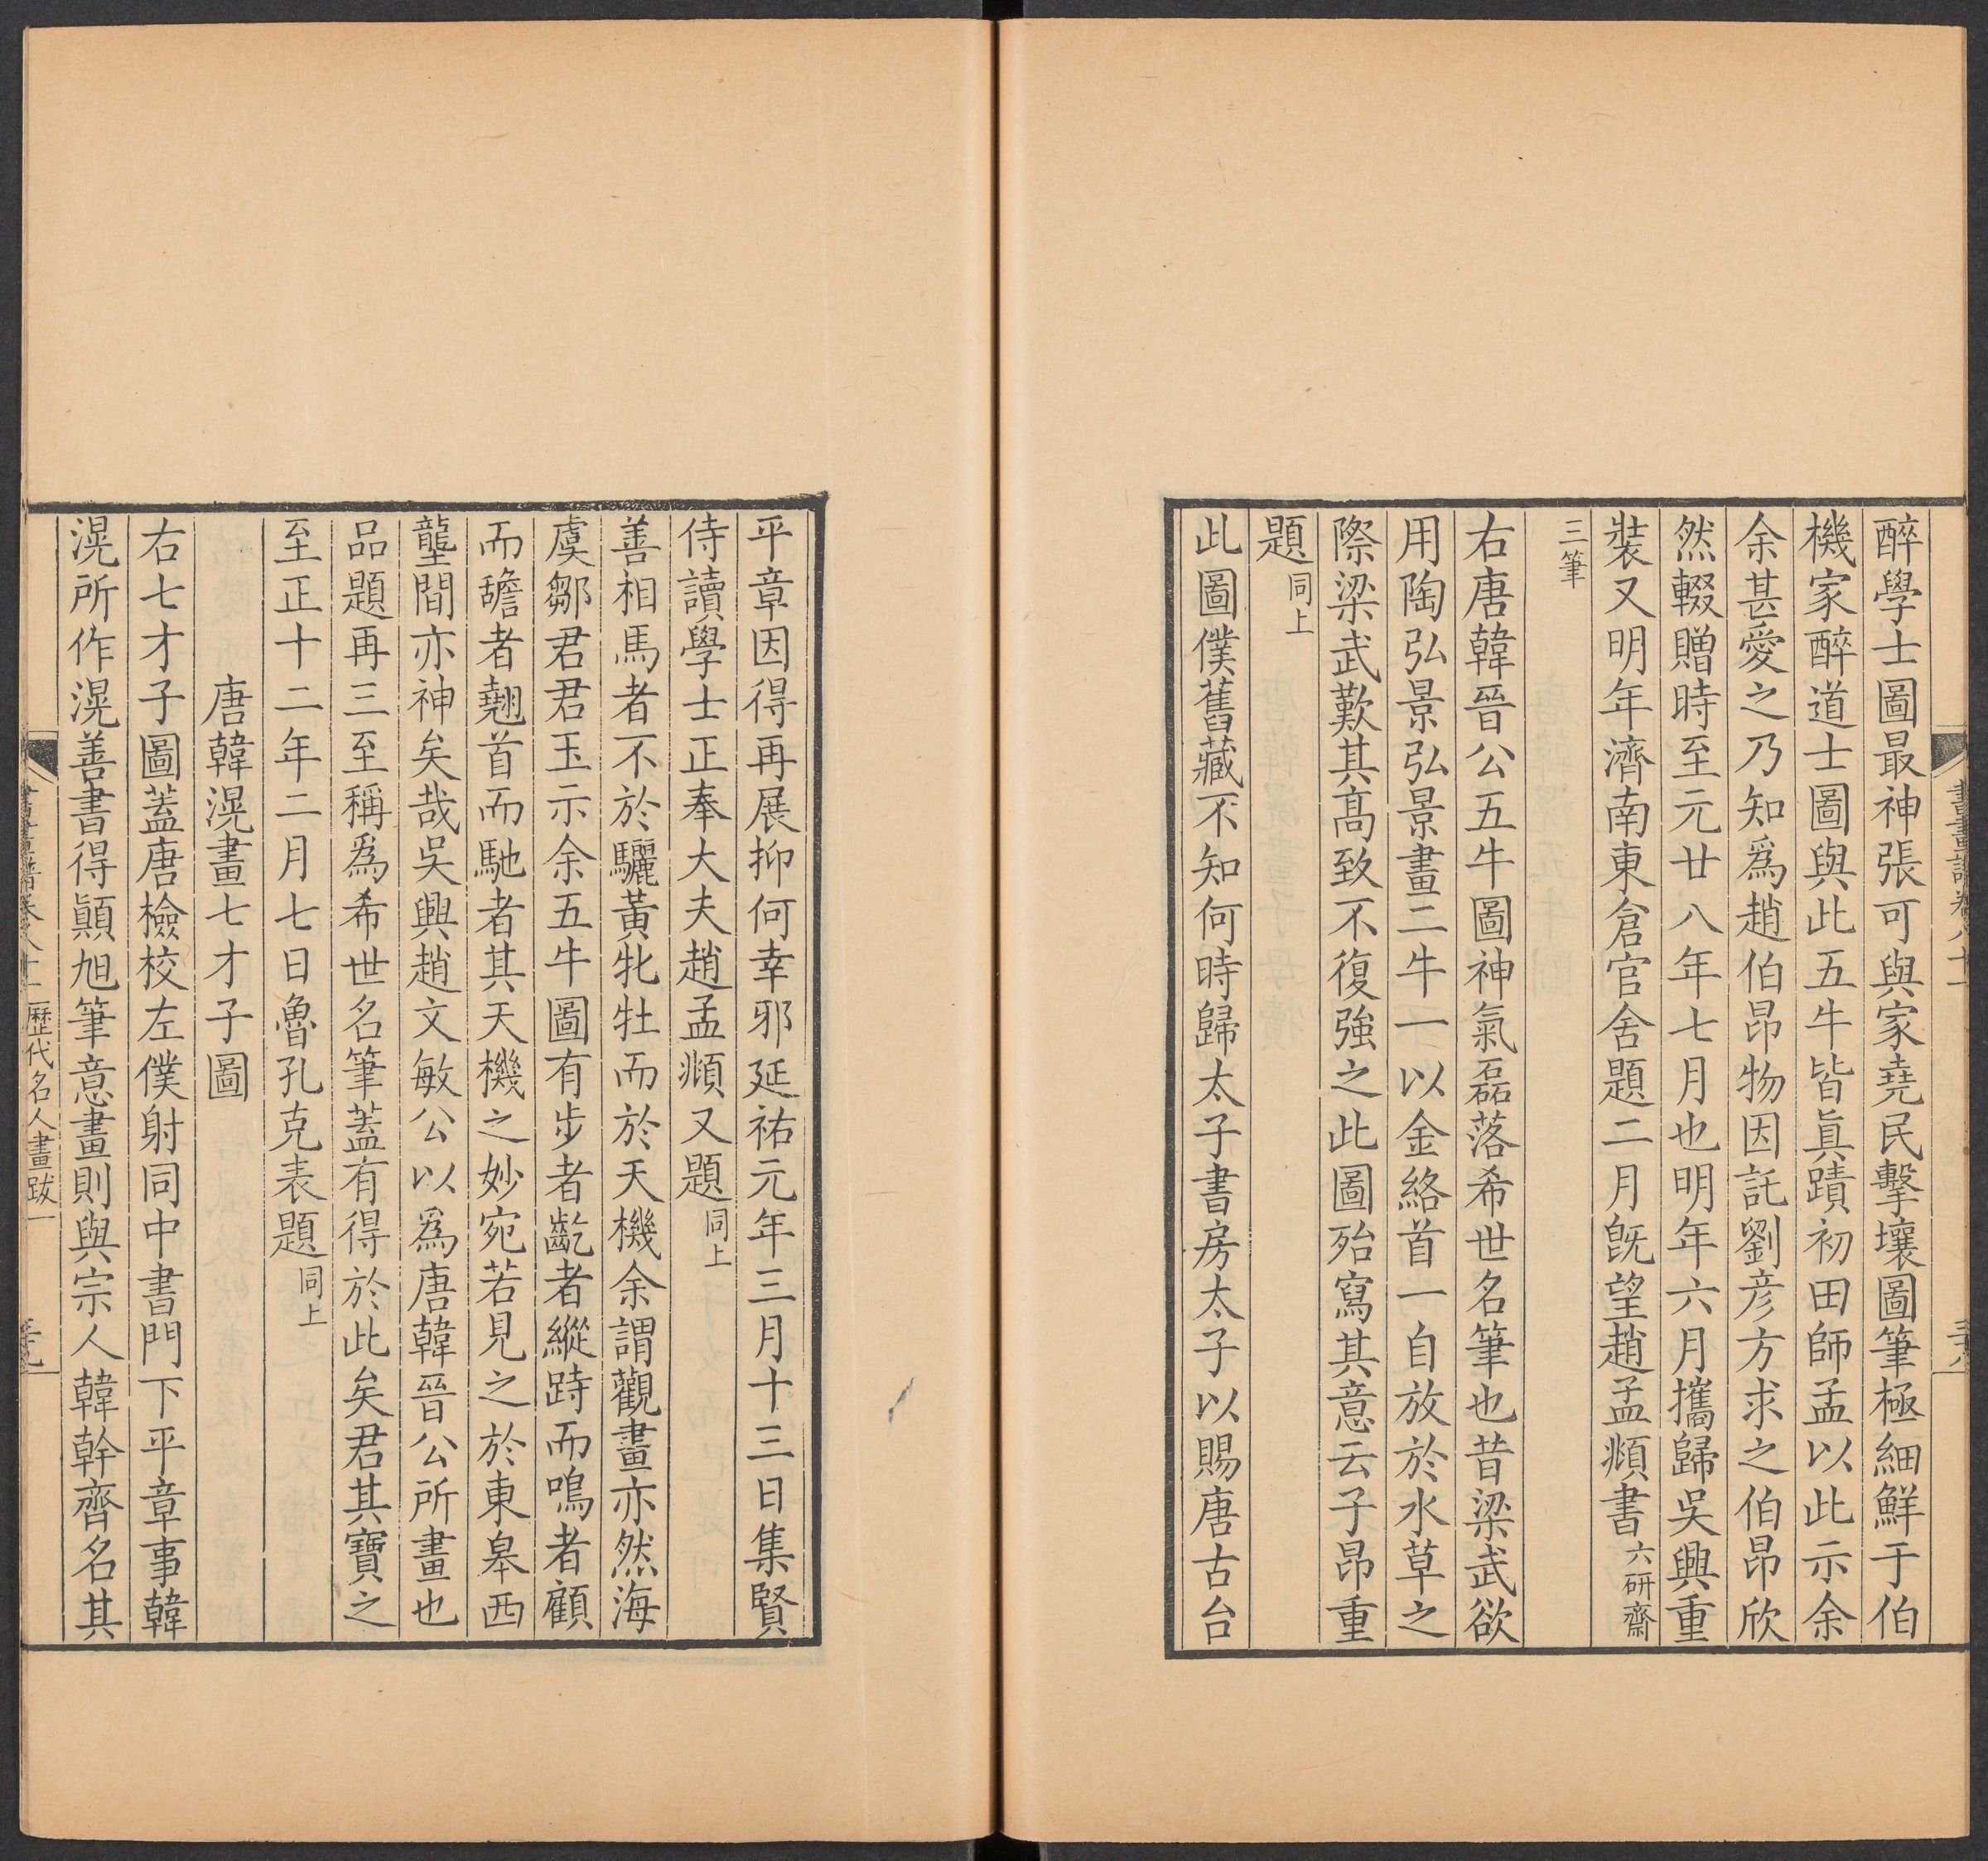 醉學士圖最神張可與家堯民擊壤圖筆極細鮮于伯
機家醉道士圖與此五牛皆眞蹟初田師孟以此示余
余甚愛之乃知爲趙伯昂物因託劉彥方求之伯昂欣
然輟贈時至元廿八年七月也明年六月攜歸吳興重
裝又明年濟南東倉官舍題二月旣望趙孟頫書六研齋
三筆
右唐韓晉公五牛圖神氣磊落希世名筆也昔梁武欲
用陶弘景弘景畫二牛一以金絡首一自放於水草之
際梁武歎其高致不復強之此圖殆寫其意云子昂重
題同上
此圖僕舊藏不知何時歸太子書房太子以賜唐古台
平章因得再展抑何幸邪延祐元年三月十三日集賢
侍讀學士正奉大夫趙孟頫又題同上
善相馬者不於驪黃牝牡而於天機余謂觀畫亦然海
虞鄒君君玉示余五牛圖有步者齕者縱跱而鳴者顧
而䑛者翹首而馳者其天機之妙宛若見之於東皋西
壟間亦神矣哉吳興趙文敏公以爲唐韓晉公所畫也
品題再三至稱爲希世名筆蓋有得於此矣君其寶之
至正十二年二月七日魯孔克表題同上
唐韓滉畫七才子圖
右七才子圖蓋唐檢校左僕射同中書門下平章事韓
滉所作滉善書得顚旭筆意畫則與宗人韓幹齊名其
書畫譜卷八十一 歷代名人畫跋一